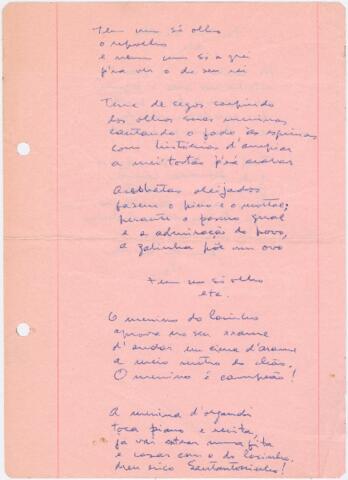 Tem um só olho
o repolho
e nem um só a grei
p'ra ver o do seu rei
de cegos carpindo
dos olhos suas meninas
cantando o fado às esquinas
com histórias d'arrepiar
a meitostão p'rá acabar
Acrobatas aleijados
fazem o pino e o mortal;
perante o pasmo geral
e a admiração do povo,
a galinha põe um ovo
Tem um só olho
etc.
O menino do lacinho
aprova no seu exame
d'andar em cima d'arame
a meio metro do chão.
O menino é campeão!
A menina d'organdi
toca piano e recita,
já vai estrear uma fita
e casar com o do lacinho.
Meu rico Santantoninho!